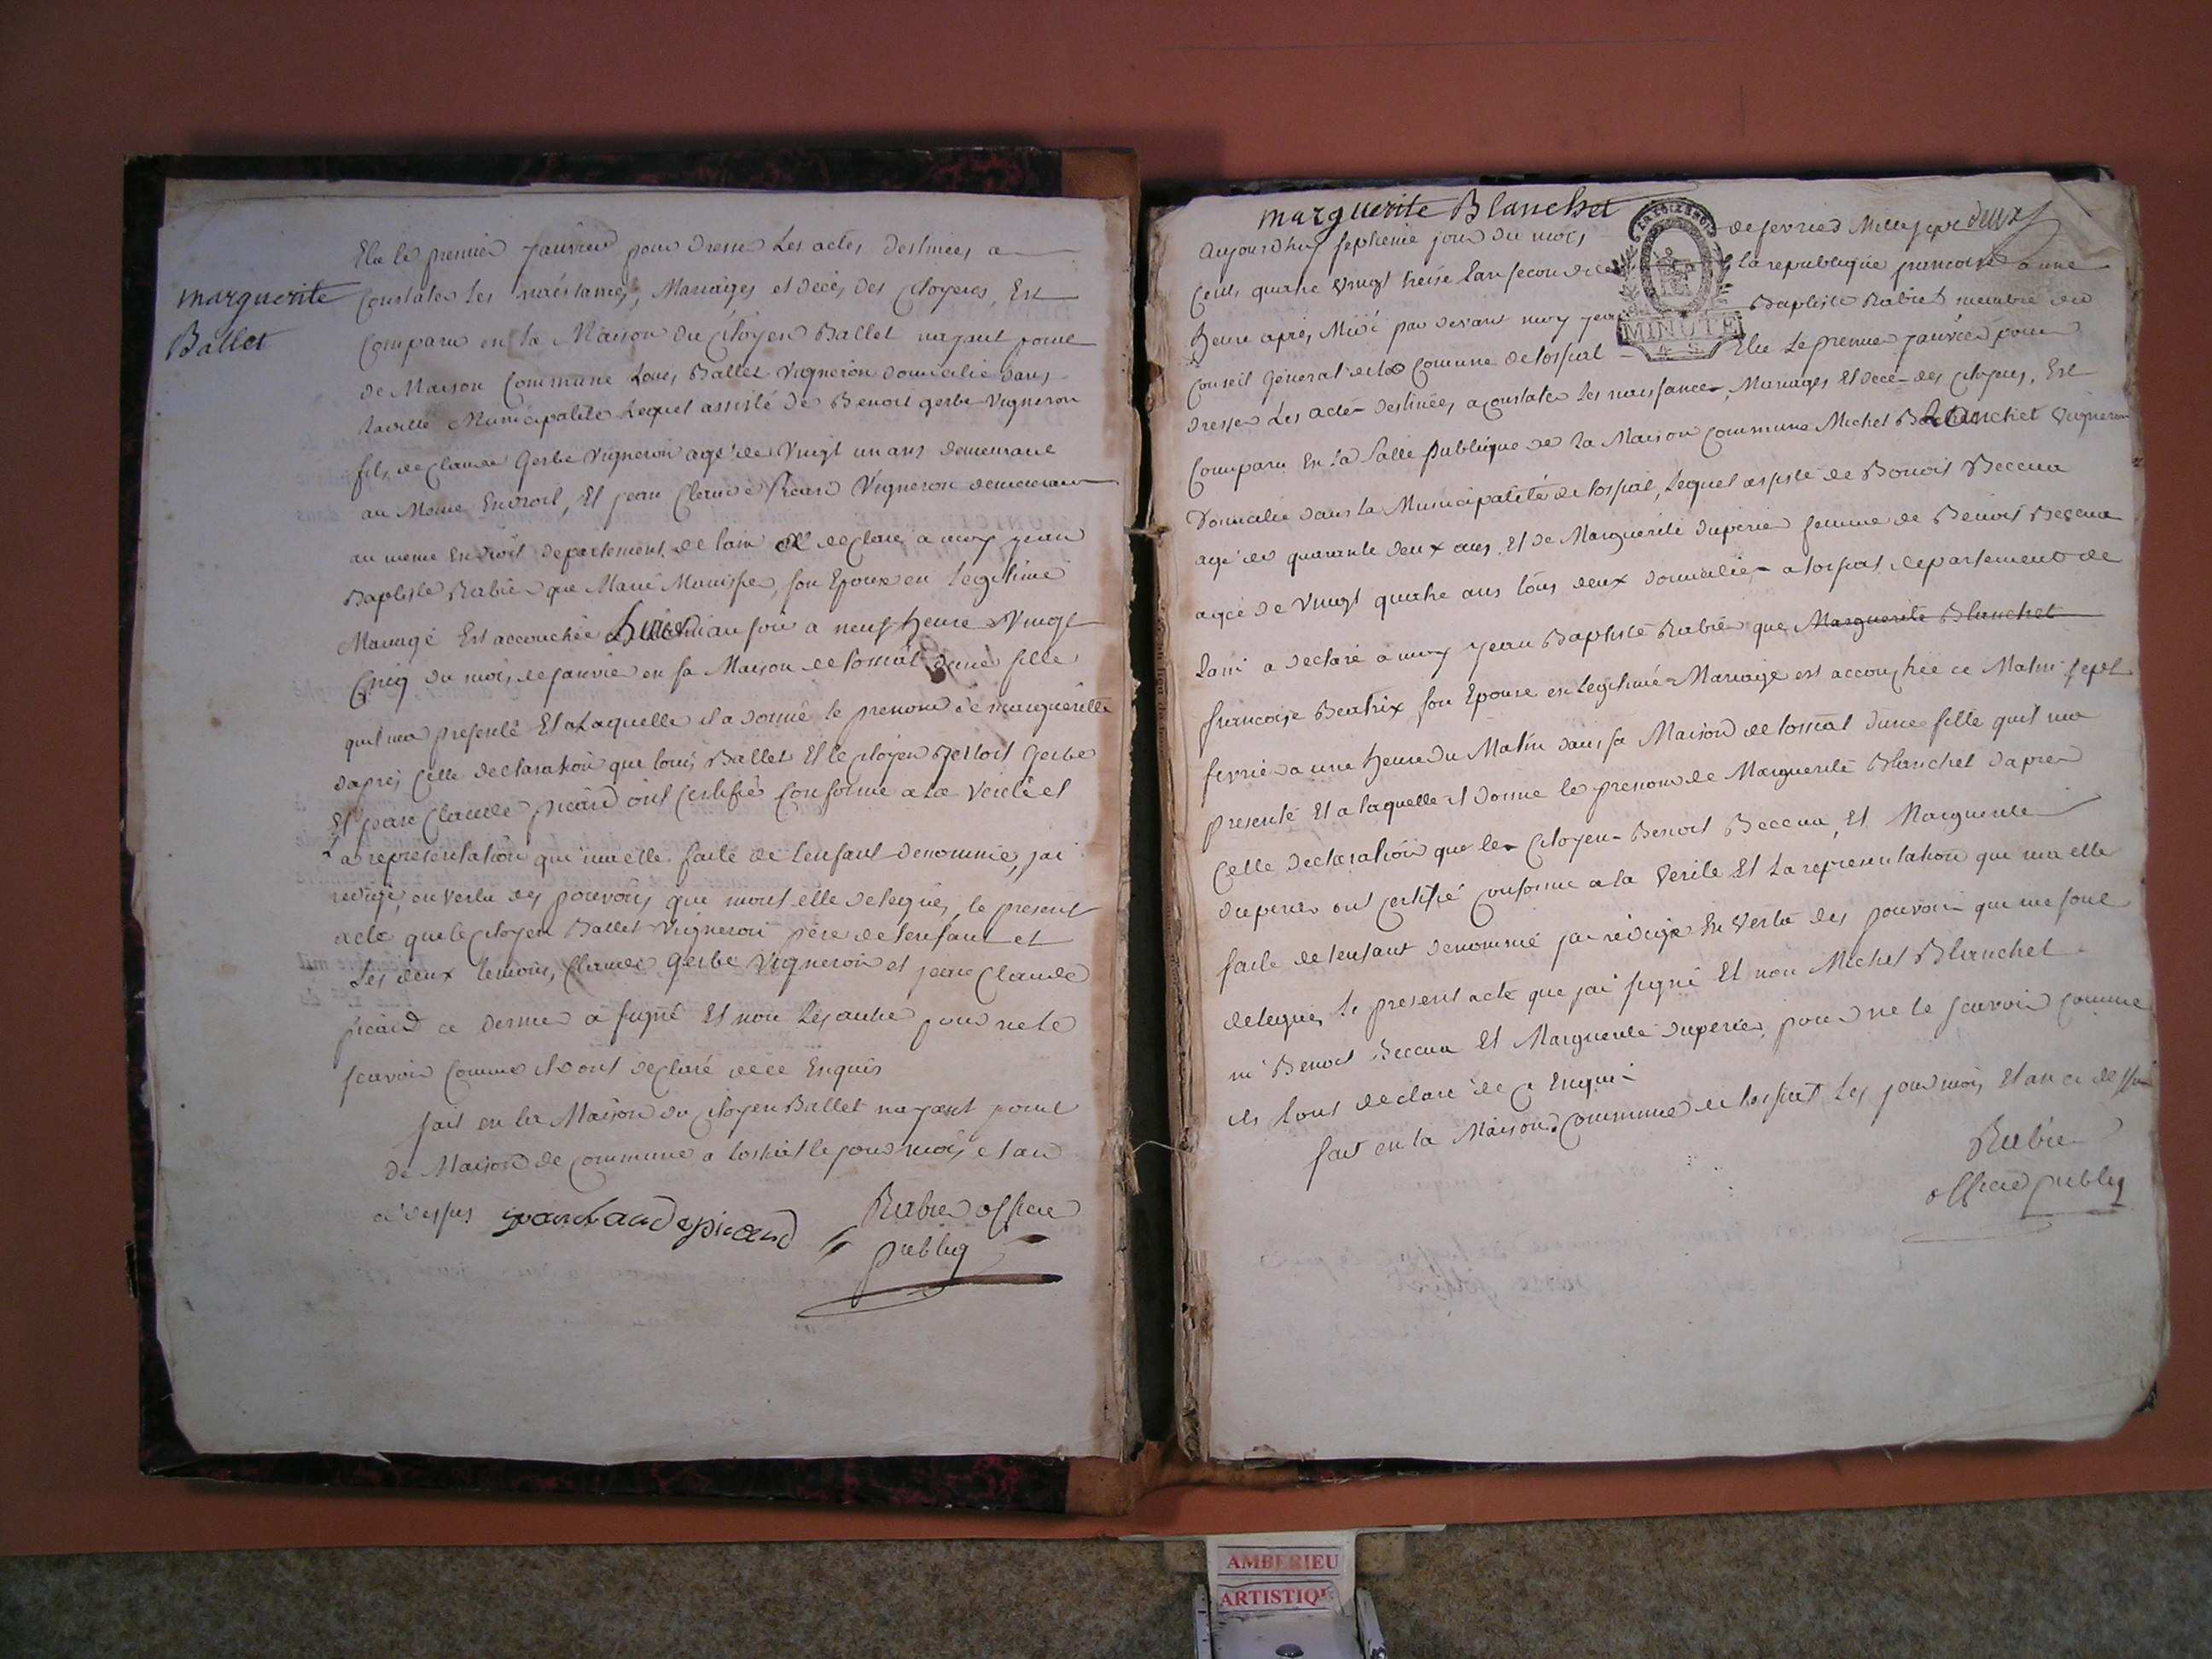 marguerite
Ballet
Elu le premier janvier pour dresser Les actes destinees a
Constater les naissances, Mariages et deces des citoyens, Est
Comparu en la Maison du Citoyen Ballet nayant point
de Maison Commune Louis Ballet Vigneron domicilie dans
laditte Municipalite Lequel assisté de Benoit gerbe Vigneron
fils de Claude Gerbe Vigneron agé de Vingt un ans demeurant
au Meme Endroit, Et jean Claude picard Vigneron demeurant
au meme Endroit departement de lain a declare a moy jean
Baptiste Rubier que Marie son Epouse en Legitime
Mariage Est accouchée au soir a neuf heure Vingt
Cinq du mois de janvier en sa Maison de lospital dune fille
quil ma presenté Et a Laquelle il a donné le prenom de marguerite
dapres cette declaration que louis Ballet Et le citoyen Benoit Gerbe
Et jean Claude picard ont certifié Conforme a la Verité et
a representation qui ma elle faite de lenfant denommé, jai
redigé en vertu des pouvoirs que mont elle delegués, le present
acte que le citoyen Ballet Vigneron pere de lenfant et
Les deux temoins, Claude Gerbe Vigneron et jean Claude
picard ce dernier a signé Et non Les autre pour ne le
scavoir comme ils ont declaré de ce Enquis
fait en la Maison du citoyen Ballet nayant point
de Maison de commune a lospital le jour mois et an
ci dessus jean claude picard Rubier officier
publiq
marguerite Blanchet
deux
Aujourdhuy septieme jour du mois de fevrier Mille sept
Cents quatre Vingt treise Lan second de la republique francoise a une
heure après Midi par devant moy jean Baptiste Rubier membre du
Conseil General de la Comune de lospital Elu Le premier janvier pour
dresser Les actes destinées a constater les naissances, Mariages Et deces des citoyens, Est
Comparu En la Salle publique de la Maison Commune Michel Blanchet Vigneron
Domicilie dans la Municipalité de lospital, Lequel assisté de Benoit Beccua
agé de quarante deux ans, Et de Marguerite Duperier femme de Benoit Beccua
agée de Vingt quatre ans tous deux domicilies a lospital departement de
Lain a declaré a moy jean Baptiste Rubier que Marguerite Blanchet
francoise Beatrix son Epouse en Legitime Mariage est accouchée ce Matin sept
fevrier a une heure du Matin dans sa Maison de lospital dune fille quil ma
presenté Et a laquelle il donne le prenom de Marguerite Blanchet dapres
Cette declaration que les Citoyens Benoit Beccua, Et Marguerite
Duperier ont certifié conforme a la Verité Et La representation que ma elle
faite de lenfant denommé jai redigé En Vertu des pouvoirs que me sont
delegués Le present acte que jai signé Et non Michel Blanchet
ni Benoit Beccua Et Marguerite Duperier pour ne le scavoir comme
ils lont declaré de ce Enquis
fait en la Maison Commune de lospital Les jour mois Et an ci dessus
Rubier
officier publiq
LA LOI LE ROI
MINUTE
4 S.
AMBERIEU
ARTISTIQ